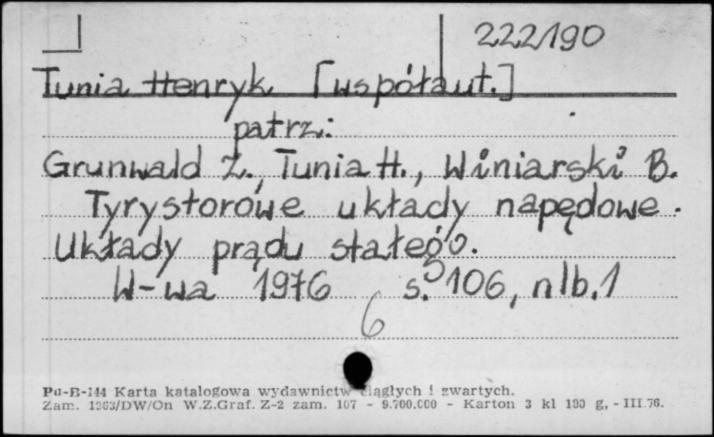 222190
Tunia Henryk [współaut.]
patrz:
Grunwald Z., Tunia H., Winiarski B.
Tyrystorowe układy napędowe.
Układy prądu stałego.
W-wa 1976 s. 106, nlb. 1
6
Pu-B-144 Karta katalogowa wydawnictw ciągłych i zwartych.
Zam. 1363/DW/On W.Z.Graf. Z-2 zam. 107 - 9.700.000 - Karton 3 kl 180 g, - III.76.